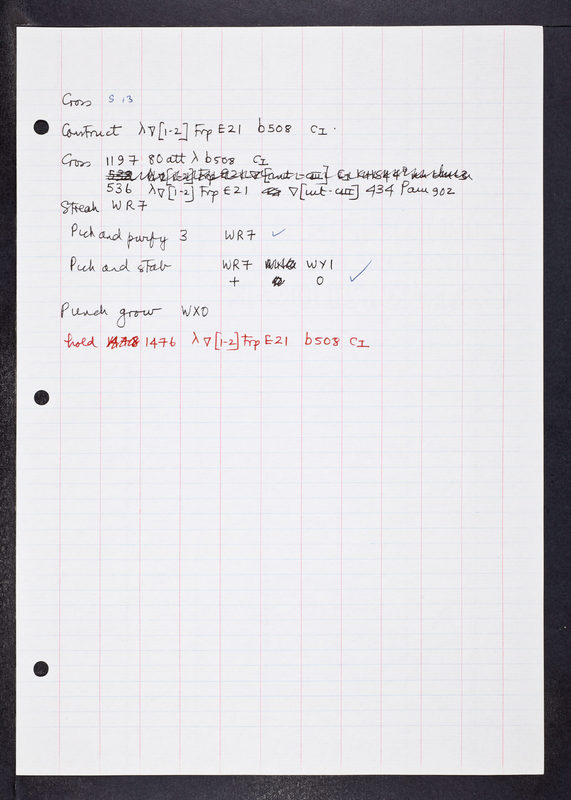 Cross S 13
Construct λ∇[1-2] Frp E21 b508 cI.
Cross 1197 80 att λ b508 cI
536 λ∇[1-2] Frp E21 ∇[int-cIII] 434 Pam 902
Streak WR7
Pick and purify 3 WR7 ✓
Pick and stab WR7 WY1
+ 0 ✓
Punch grow WX0
hold 1476 λ∇[1-2] Frp E21 b508 cI